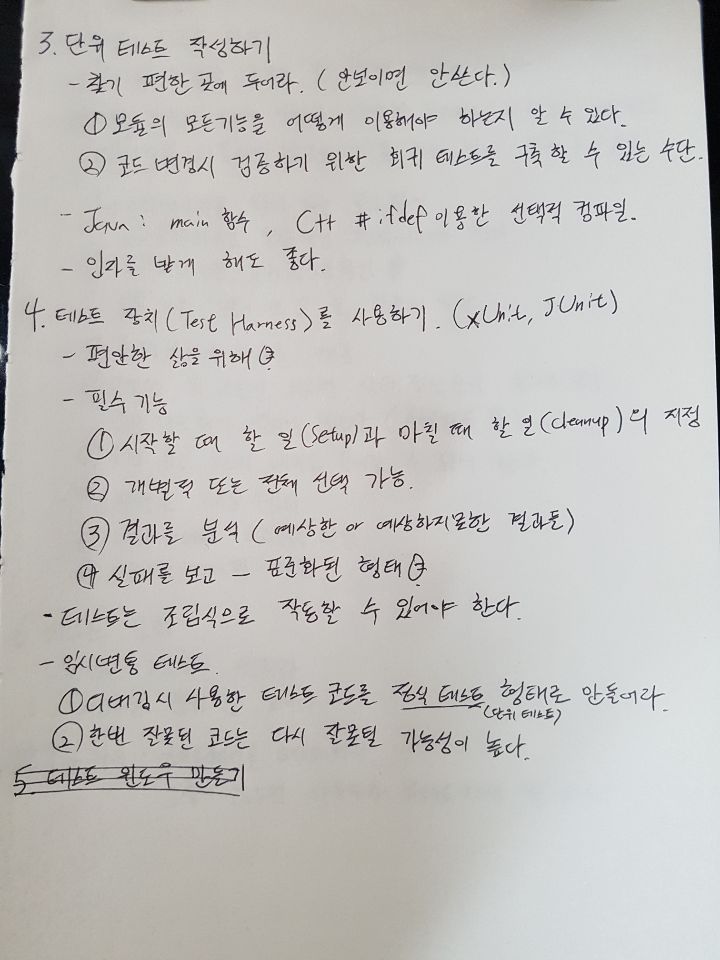 3. 단위 테스트 작성하기
- 찾기 편한 곳에 두어라. (안보이면 안쓴다.)
① 모듈의 모든기능을 어떻게 이용해야 하는지 알 수 있다.
② 코드 변경시 검증하기 위한 회귀 테스트를 구축할 수 있는 수단.
- Java : main 함수, C++ #ifdef 이용한 선택적 컴파일.
- 인자를 받게 해도 좋다.
4. 테스트 장치(Test Harness)를 사용하기. (xUnit, JUnit)
- 편안한 삶을 위해
- 필수 기능
① 시작할 때 할 일(Setup)과 마칠 때 할 일(cleanup)의 지정
② 개별적 또는 전체 선택 가능.
③ 결과를 분석 (예상한 or 예상하지못한 결과들)
④ 실패를 보고 - 표준화된 형태
- 테스트는 조립식으로 작동할 수 있어야 한다.
- 임시변통 테스트.
① 디버깅시 사용한 테스트 코드를 정식 테스트 형태로 만들어라.
(단위 테스트)
② 한번 잘못된 코드는 다시 잘못될 가능성이 높다.
5. 테스트 윈도우 만들기